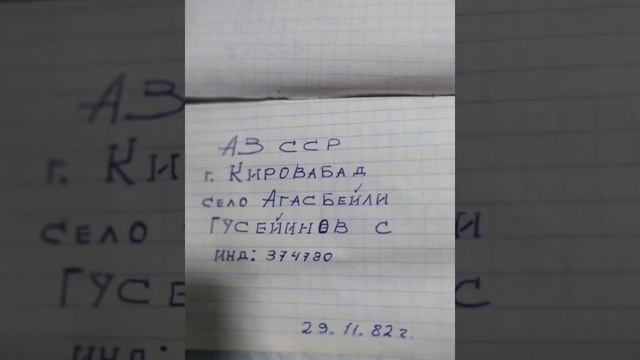 АЗ ССР
г. КИРОВАБАД
село АГАСБЕЙЛИ
ГУСЕЙИНОВ С
ИНД: 374780
29. 11. 82 г.